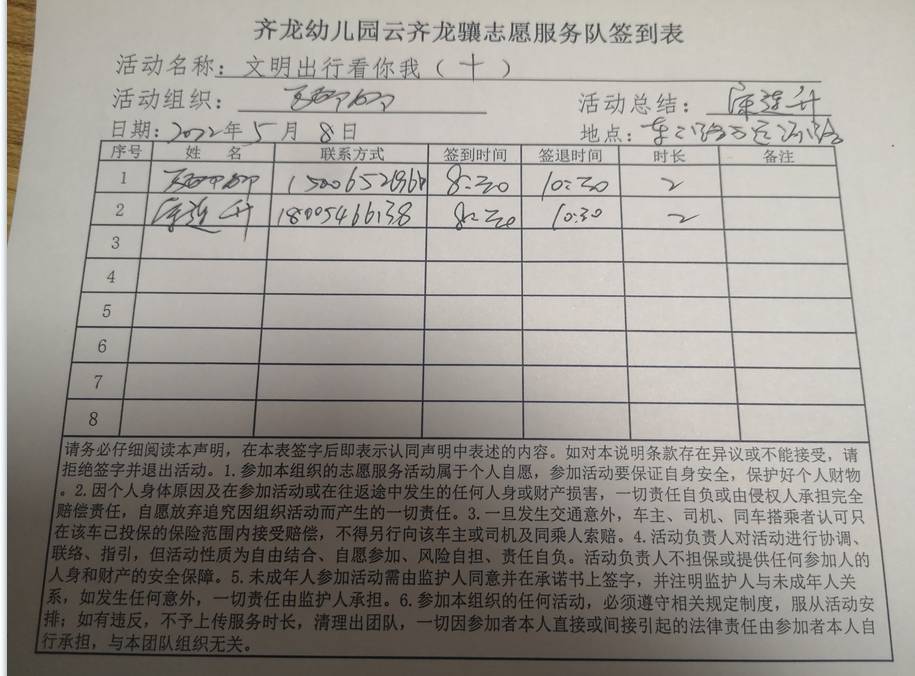 齐龙幼儿园云齐龙骧志愿服务队签到表
活动名称：文明出行看你我（十）
活动组织：
活动总结：陈莲升
日期：2022年5月8日
地点：
序号 姓 名 联系方式 签到时间 签退时间 时长 备注
1 8:30 10:30 2
2 陈莲升 18005466138 8:30 10:30 2
3
4
5
6
7
8
请务必仔细阅读本声明，在本表签字后即表示认同声明中表述的内容。如对本说明条款存在异议或不能接受，请
拒绝签字并退出活动。1.参加本组织的志愿服务活动属于个人自愿，参加活动要保证自身安全，保护好个人财物
。2.因个人身体原因及在参加活动或在往返途中发生的任何人身或财产损害，一切责任自负或由侵权人承担完全
赔偿责任，自愿放弃追究因组织活动而产生的一切责任。3.一旦发生交通意外，车主、司机、同车搭乘者认可只
在该车已投保的保险范围内接受赔偿，不得另行向该车主或司机及同乘人索赔。4.活动负责人对活动进行协调、
联络、指引，但活动性质为自由结合、自愿参加、风险自担、责任自负。活动负责人不担保或提供任何参加人的
人身和财产的安全保障。5.未成年人参加活动需由监护人同意并在承诺书上签字，并注明监护人与未成年人关
系，如发生任何意外，一切责任由监护人承担。6.参加本组织的任何活动，必须遵守相关规定制度，服从活动安
排；如有违反，不予上传服务时长，清理出团队，一切因参加者本人直接或间接引起的法律责任由参加者本人自
行承担，与本团队组织无关。